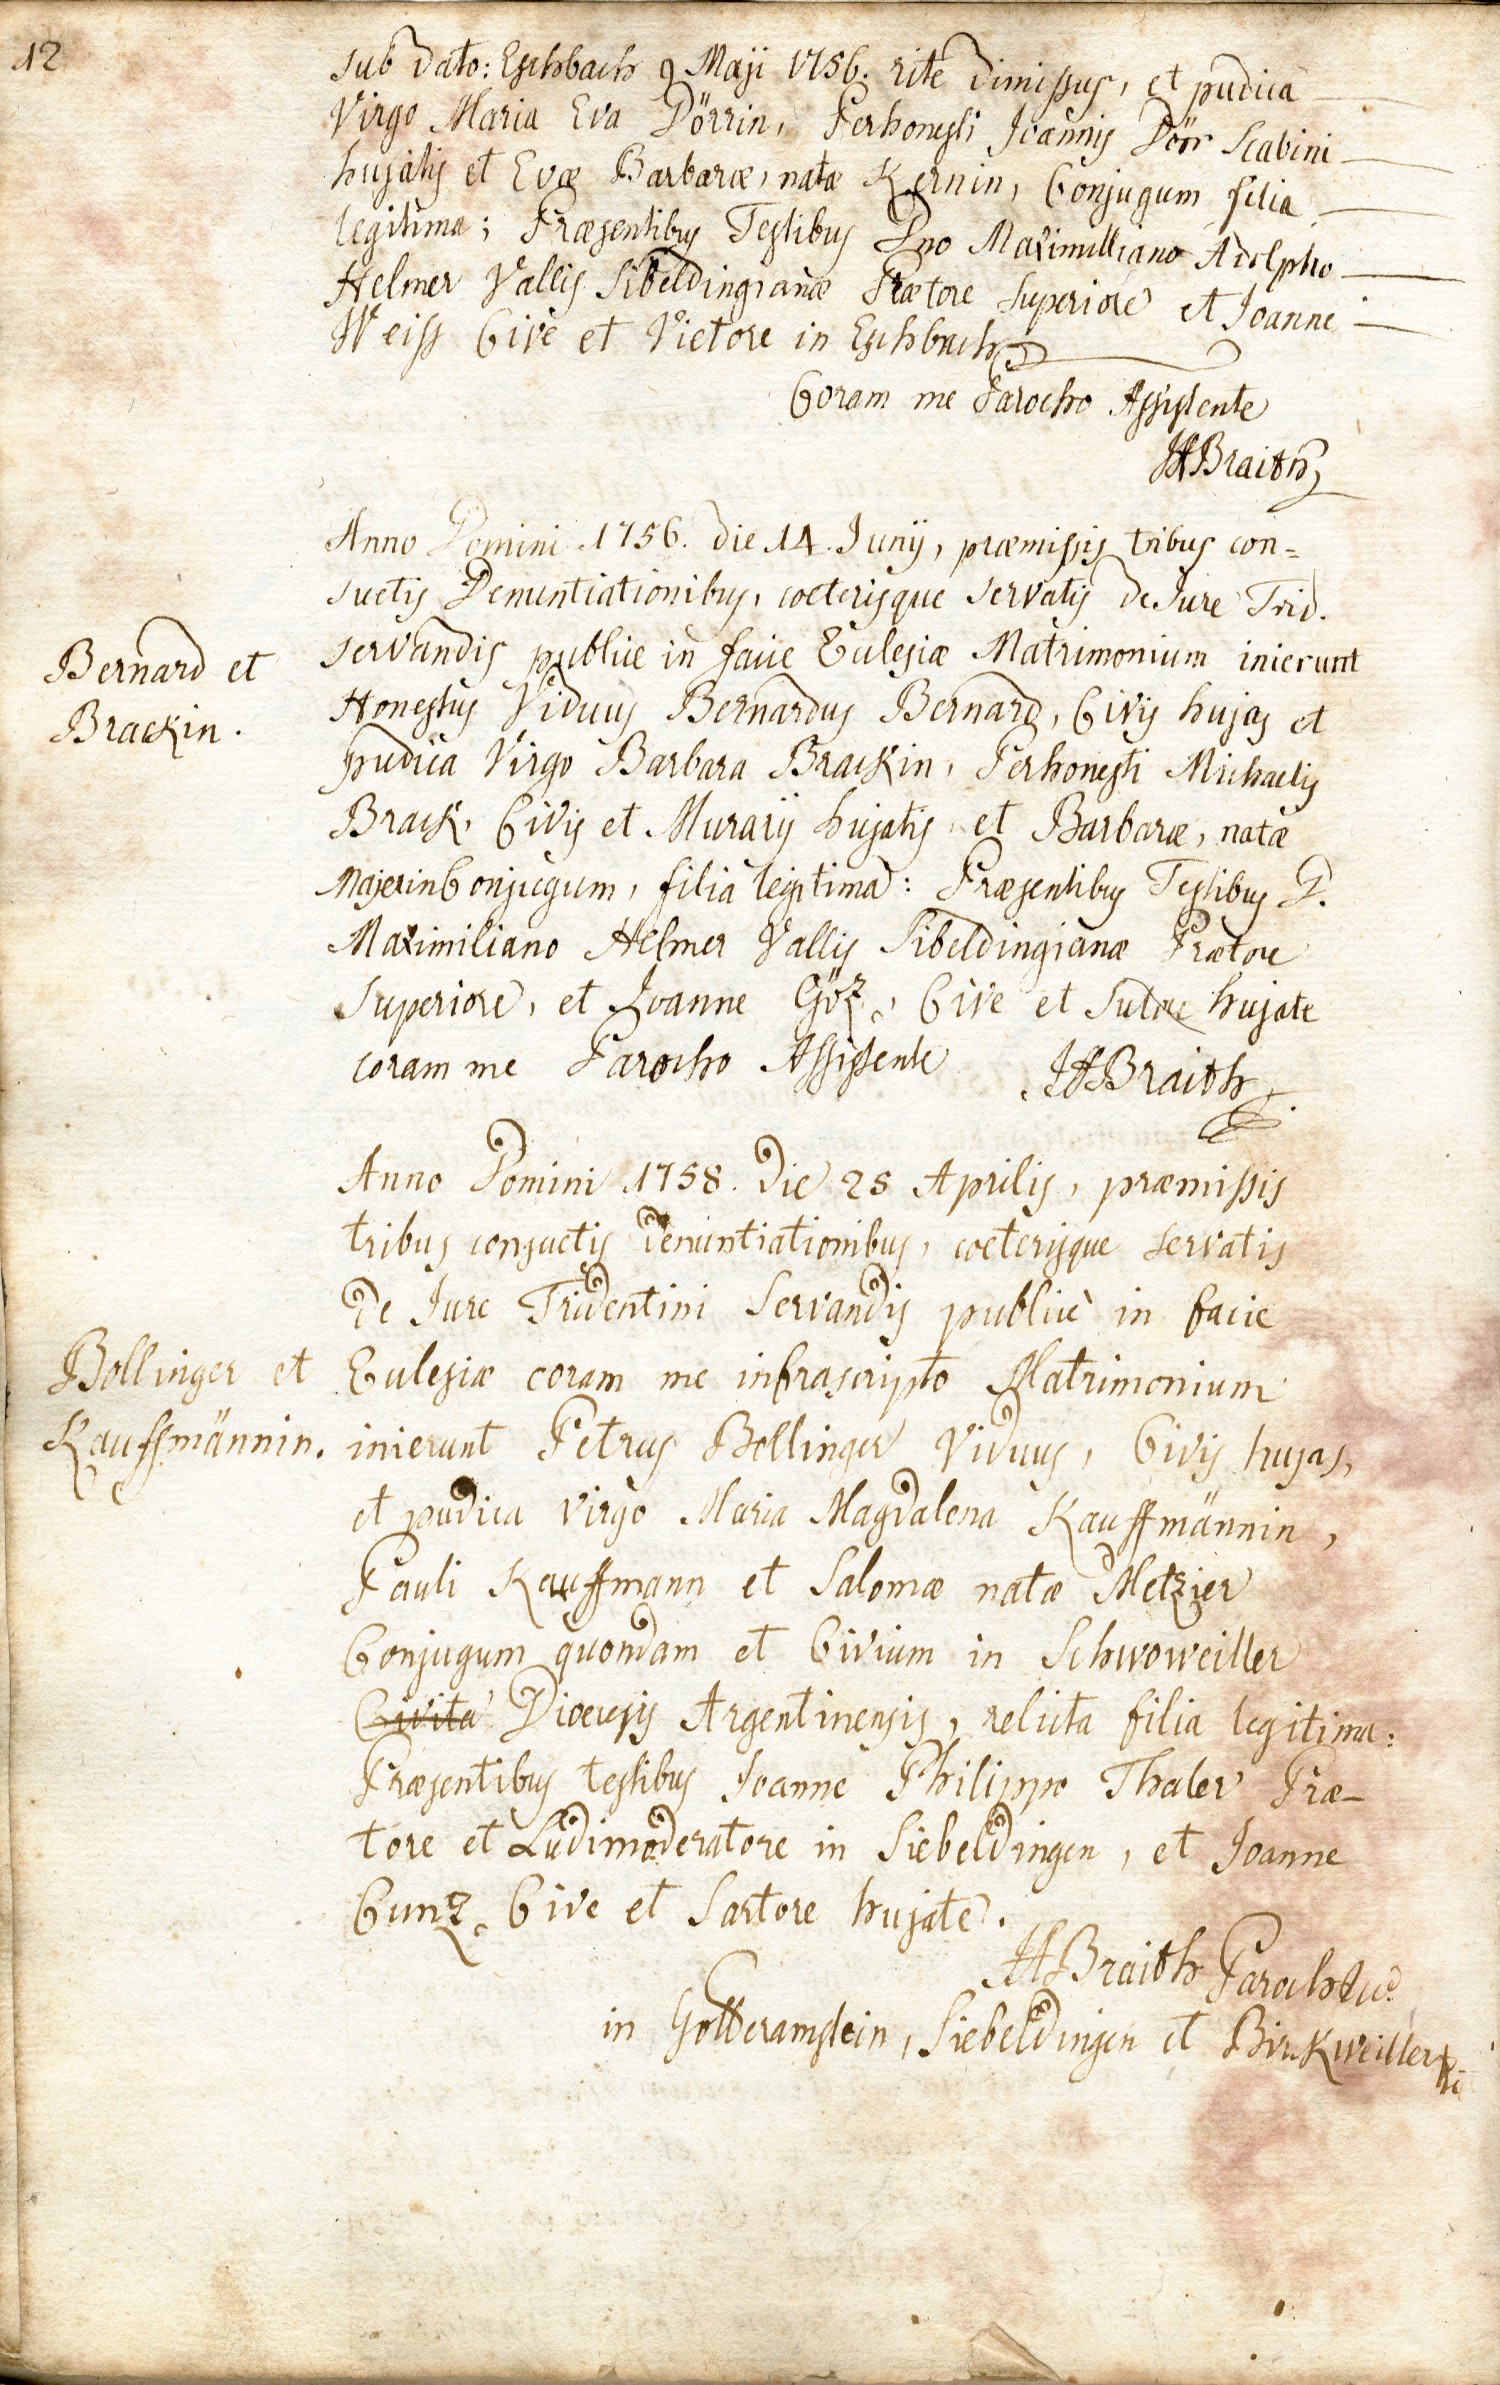 12
sub dato: Eschbach 9 Maji 1756. rite dimissus, et pudica
Virgo Maria Eva Dörrin, Perhonesti Joannis Dörr Scabini
hujatis et Evæ Barbaræ, natæ Kernin, Conjugum filia
legitima; Præsentibus Testibus Dno Maximilliano Adolpho
Helmer Vallis Sibeldingianæ Prætore Superiore et Joanne
Weiss Cive et Vietore in Eschbach
Coram me Parocho Assistente
JABraith
Anno Domini 1756. die 14. Junij, præmissis tribus con=
suetis Denuntiationibus, coeterisque servatis de Jure Trid.
Bernard et
Brackin.
servandis publice in facie Ecclesiæ Matrimonium inierunt
Honestus Viduus Bernardus Bernard, Civis hujas et
pudica Virgo Barbara Brackin, Perhonesti Michaelis
Brack, Civis et Murarij hujatis, et Barbaræ, natæ
Majerin Conjugum, filia legitima: Præsentibus Testibus D.
Maximiliano Helmer Vallis Sibeldingianæ Prætore
Superiore, et Joanne Göz, Cive et Sutore hujate
coram me Parocho Assistente JABraith
Anno Domini 1758. die 25 Aprilis, præmissis
tribus consuetis denuntiationibus, coeterisque servatis
de Jure Tridentini Servandis publicè in facie
Bollinger et
Kauffmännin.
Ecclesiæ coram me infrascripto Matrimonium
inierunt Petrus Bollinger Viduus, Civis hujas,
et pudica virgo Maria Magdalena Kauffmännin,
Pauli Kauffmann et Salomæ natæ Metzier
Conjugum quondam et Civium in Schwoweiller
Civita Dioecesis Argentinensis, relicta filia legitima:
Præsentibus testibus Joanne Philippo Thaler Præ-
tore et Ludimoderatore in Siebeldingen, et Joanne
Cunz Cive et Sartore hujate.
JABraith Parochus
in Godderamstein, Siebeldingen et Birkweiller